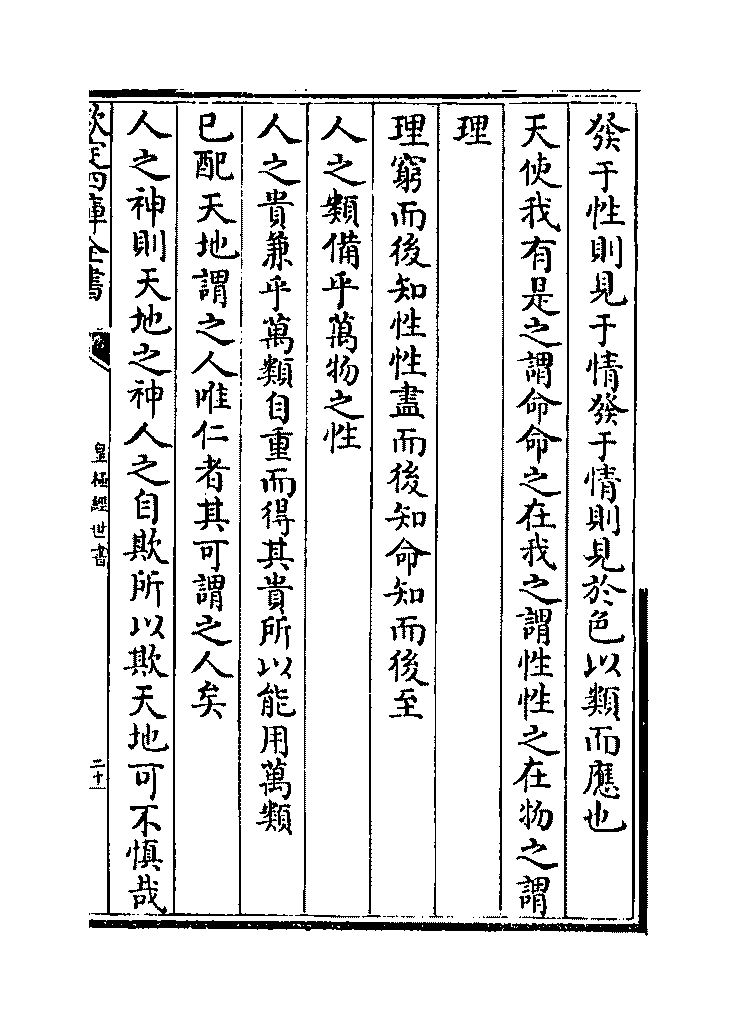 發于性則見于情發于情則見於色以類而應也
天使我有是之謂命命之在我之謂性性之在物之謂
理
理窮而後知性性盡而後知命命知而後至
人之類備乎萬物之性
人之貴兼乎萬類自重而得其貴所以能用萬類
已配天地謂之人唯仁者其可謂之人矣
人之神則天地之神人之自欺所以欺天地可不慎哉
欽定四庫全書
皇極經世書
二十